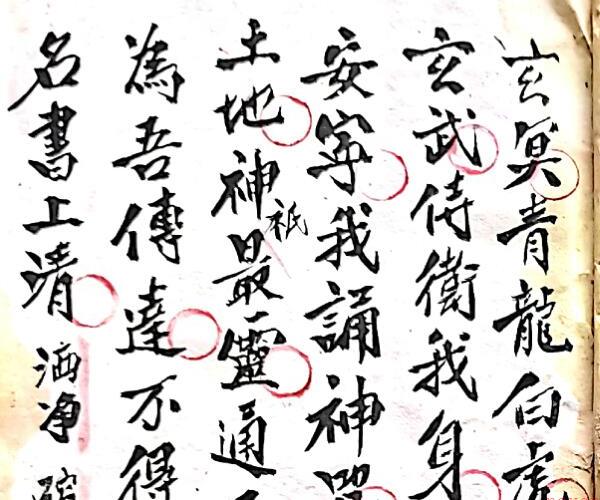 玄冥青龍白虎
玄武侍衛我身
安寧我誦神咒
土地神祇最靈通
為吾傳達不得
名書上清洒净